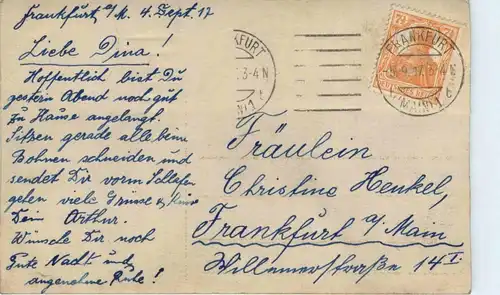 Frankfurt a/M. 4. Sept. 17
Liebe Dina!
Hoffentlich bist Du
gestern Abend noch gut
zu Hause angelangt.
Sitzen gerade alle beim
Bohnen schneiden und
sendet Dir vorm Schlafen
gehen viele Grüsse &
Dein Arthur.
Wünsche Dir noch
Gute Nacht und
angenehme Ruhe!
FRANKFURT
3-4 N
FRANKFURT
3-4 N
(MAIN) 1
Fräulein
Christine Henkel,
Frankfurt a/Main
Willemerstraße 14 I